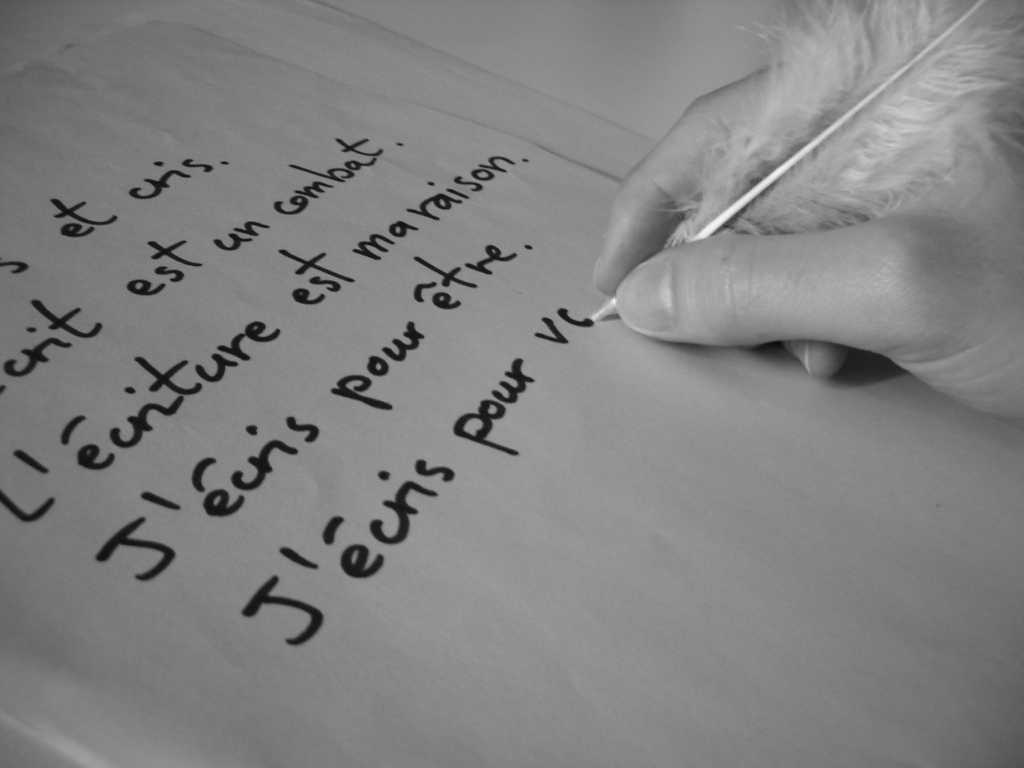 et cris.
écrit est un combat.
L'écriture est ma raison.
J'écris pour être.
J'écris pour vc